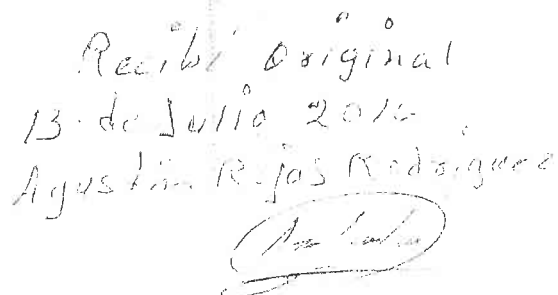 Recibí Original
13 de Julio
Agustín Rojas Rodriguez